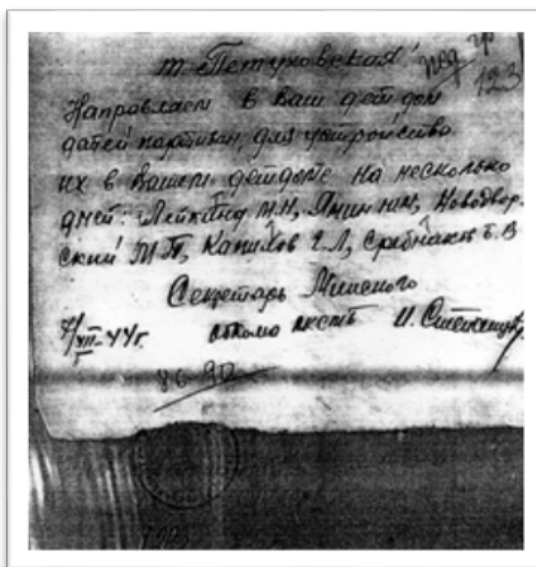 т. Петуховская!
под гр
123
Направляем в Ваш детдом
датей партизан, для устройства
их в Вашем детдоме на несколько
дней: Лейкинд М.Н, Ямин Н.Н, Новодвор-
ский М.П, Капилов Г.Л, Сребнаков Б.В
Секретарь Минского
обкома ЛКСМБ И.
7/VIII-44г.
86-90